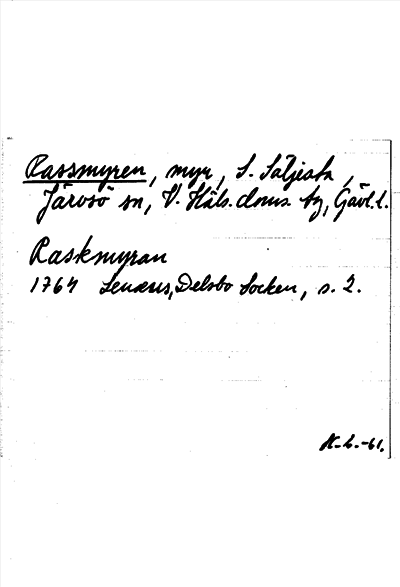 Rassmyren, myr, S. Säljesta,
Järvsö sn, V. Häls. doms. tg, Gävl. l.
Raskmyran
1764 Lenæus, Delsbo Socken, s. 2.
H. L. -61.